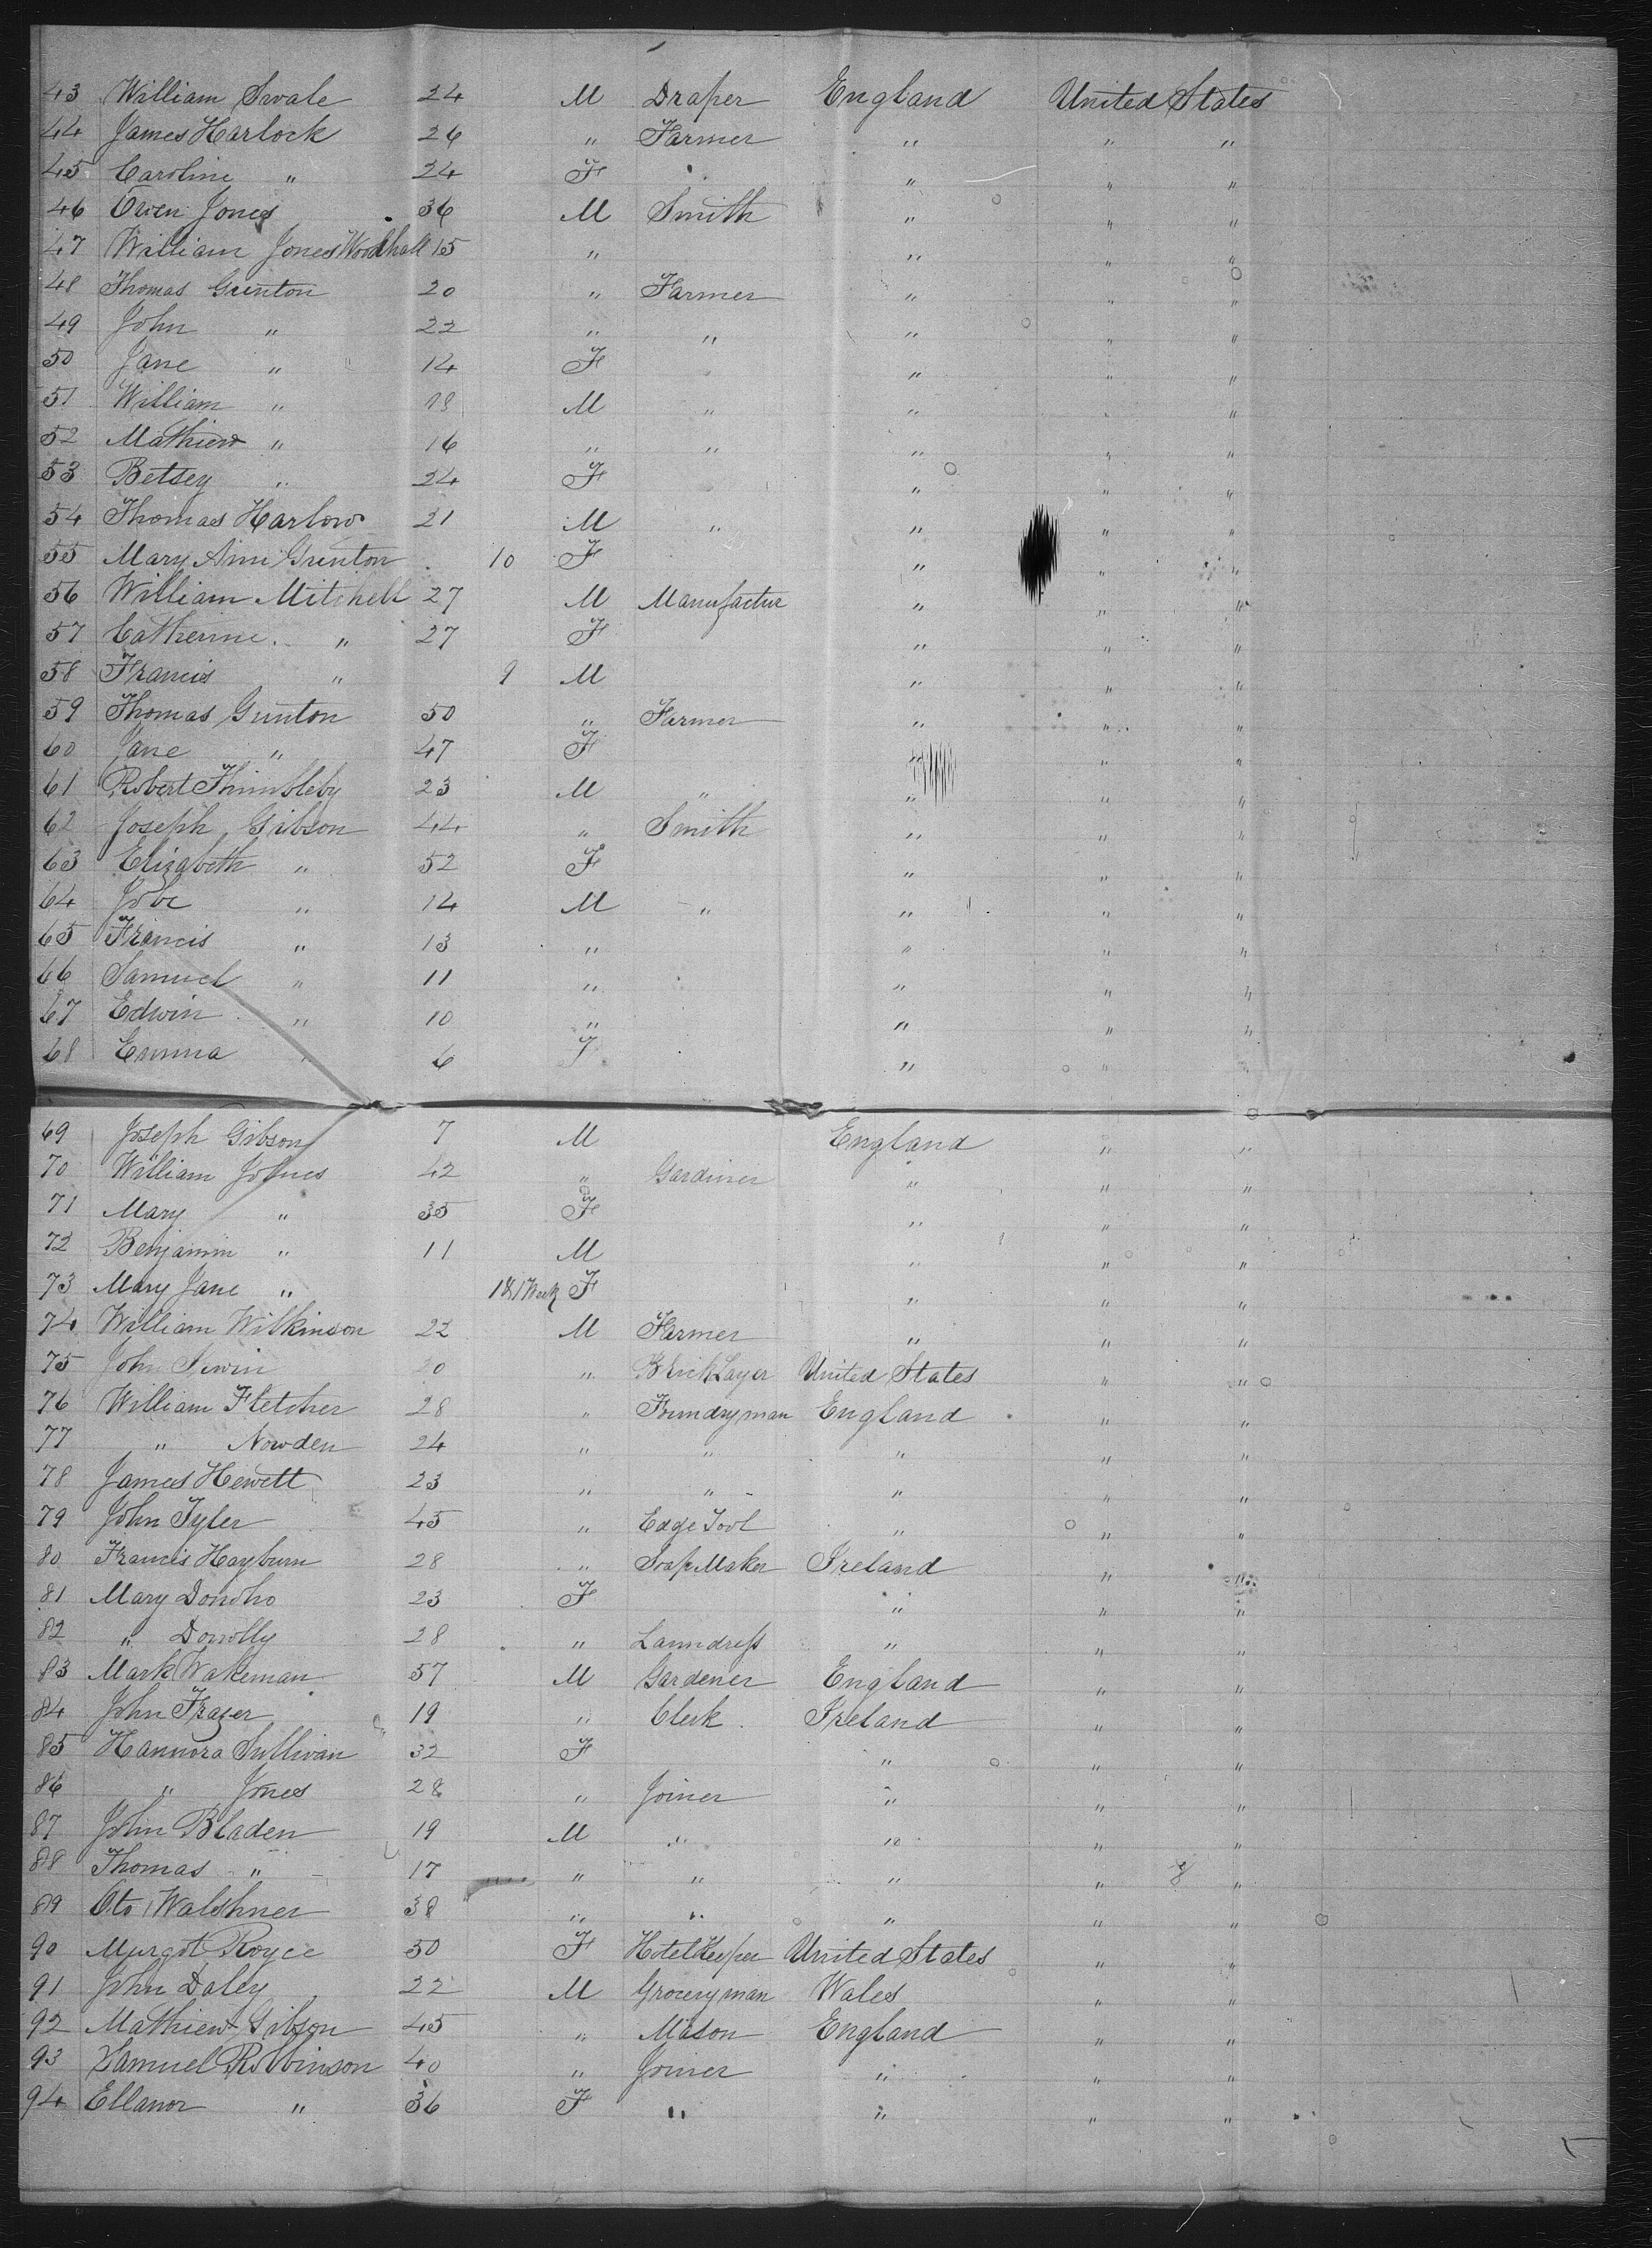 43 William Swale 24 M Draper England United States
44 James Harlock 26 " Farmer " " "
45 Caroline " 24 F " " "
46 Owen Jones 36 M Smith " " "
47 William Jones Woodhall 15 " " " "
48 Thomas Grinton 20 " Farmer " " "
49 John " 22 " " " " "
50 Jane " 14 F " " "
51 William " 18 M " " " "
52 Mathiew " 16 " " " " "
53 Betsey " 24 F " " "
54 Thomas Harlow 21 M " " " "
55 Mary Ann Grinton 10 F " " "
56 William Mitchell 27 M Manufactur " " "
57 Catherine " 27 F " " "
58 Francis " 9 M " " "
59 Thomas Grinton 50 " Farmer " " "
60 Jane " 47 F " " "
61 Robert Thimbleby 23 M " " " "
62 Joseph Gibson 44 " Smith " " "
63 Elizabeth " 52 F " " "
64 Jobe " 14 M " " " "
65 Francis " 13 " " " "
66 Samuel " 11 " " " "
67 Edwin " 10 " " " "
68 Emma " 6 F " " "
69 Joseph Gibson 7 M England " "
70 William 42 " Gardiner " " "
71 Mary " 35 F " " "
72 Benjamin " 11 M " " "
73 Mary Jane " Week F " " "
74 William Wilkinson 22 M Farmer " " "
75 John 20 " Brick Layer United States " "
76 William Fletcher 28 " Foundryman England " "
77 " Nowden 24 " " " " "
78 James Hewett 23 " " " " "
79 John Tyler 45 " Edge Tool " " "
80 Francis Hayburn 28 " Soap Maker Ireland " "
81 Mary Donoho 23 F " " "
82 " Donolly 28 " Laundress " " "
83 Mark Wakeman 57 M Gardener England " "
84 John Frazer 19 " Clerk Ireland " "
85 Hannora Sullivan 32 F " " "
86 " Jones 28 " Joiner " " "
87 John Bladen 19 M " " " "
88 Thomas " 17 " " " " "
89 Oto Walshner 38 " " " " "
90 Murgot Royce 50 F Hotel Keeper United States " "
91 John Daley 22 M Groceryman Wales " "
92 Mathiew Gibson 45 " Mason England " "
93 Samuel Robbinson 40 " Joiner " " "
94 Ellanor " 36 F " " " "